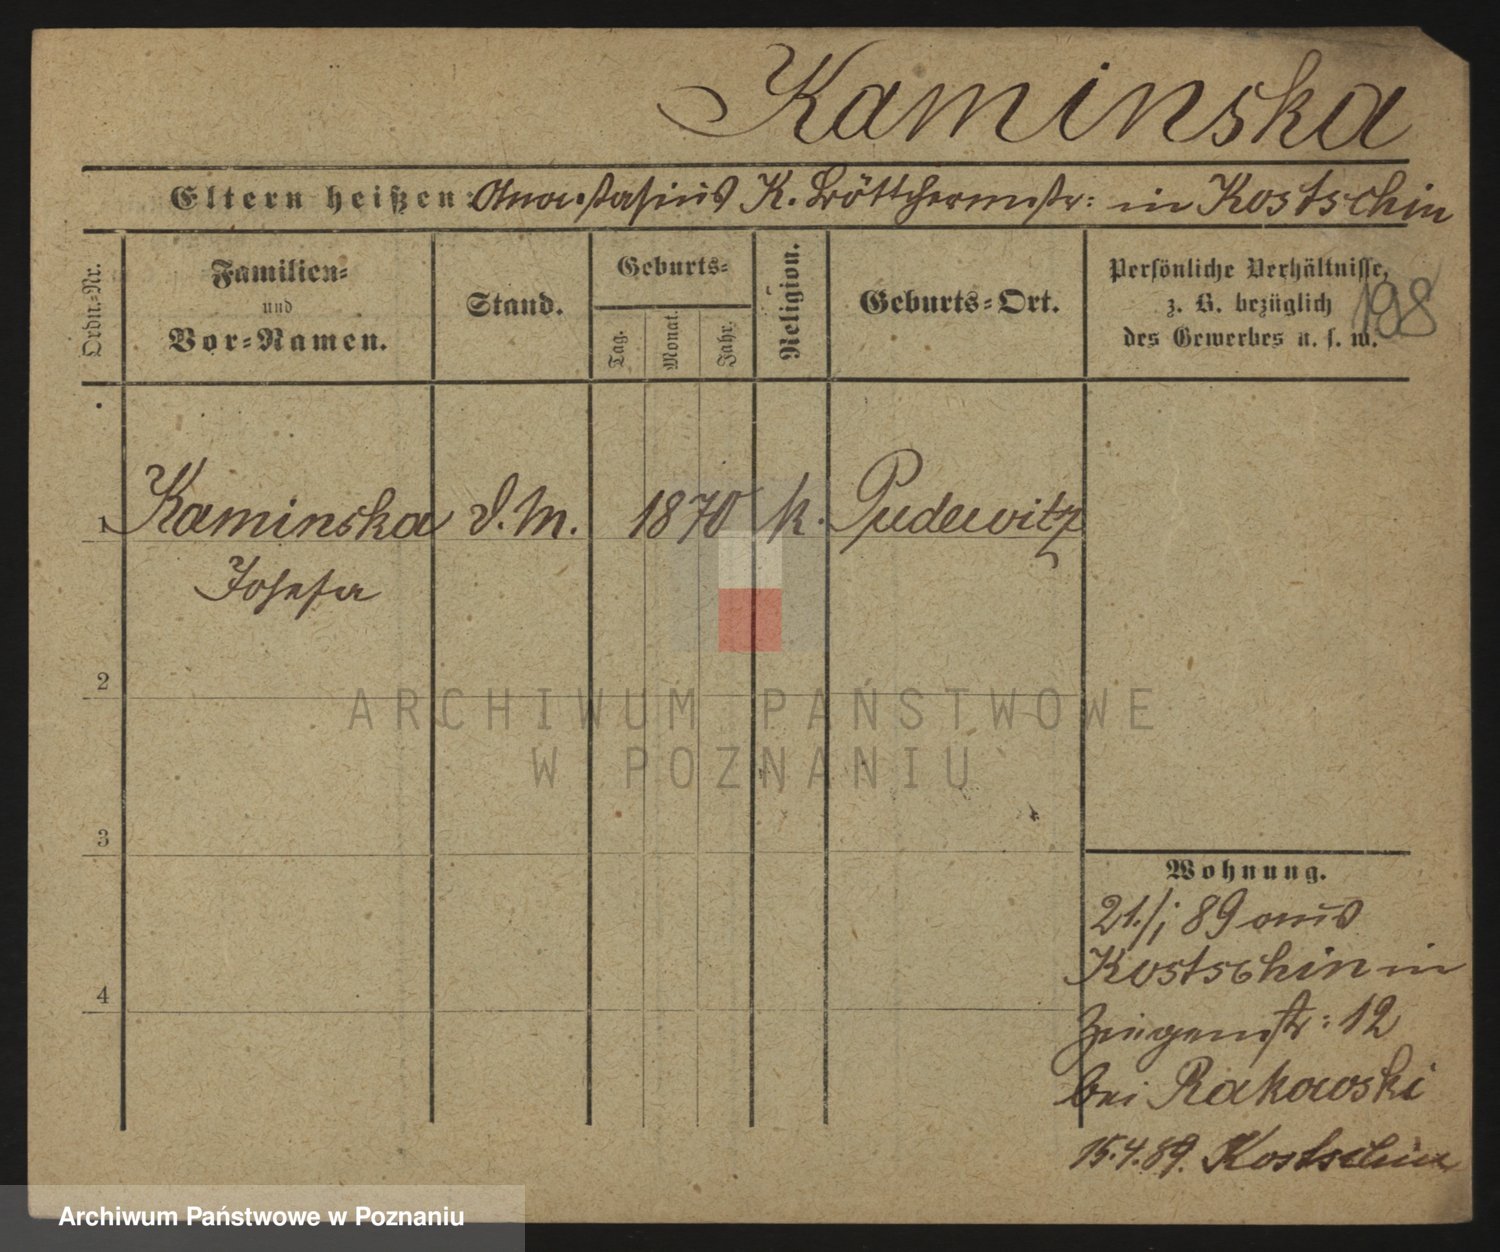 Kaminska
Eltern heißen: Anastasius K. Böttchermstr: in Kostschin
Ordn.-Nr.
Familien-
und
Vor-Namen.
Stand.
Geburts-
Tag.
Monat.
Jahr.
Religion.
Geburts-Ort.
Persönliche Verhältnisse,
z. B. bezüglich
des Gewerbes u. s. w.
198
1 Kaminska D. M. 1870 k. Pudewitz
Josefa
2
3
4
Wohnung.
21./1 89 aus
Kostschin in
Ziegenstr: 12
bei Rakowski
15.4.89. Kostschin
ARCHIWUM PAŃSTWOWE
W POZNANIU
Archiwum Państwowe w Poznaniu